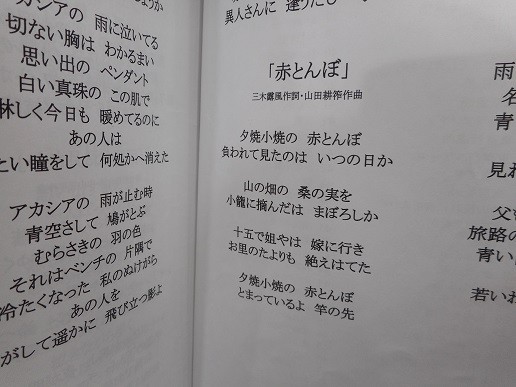 しょうか
カシアの 雨に泣いてる
切ない胸は わかるまい
思い出の ペンダント
白い真珠の この肌で
淋しく今日も 暖めてるのに
あの人は
とい瞳をして 何処かへ消えた
アカシアの 雨が止む時
青空さして 鳩がとぶ
むらさきの 羽の色
それはベンチの 片隅で
冷たくなった 私のぬけがら
あの人を
がして遥かに 飛び立つ影よ
異人さんに 逢うたび
「赤とんぼ」
三木露風作詞・山田耕筰作曲
夕焼小焼の 赤とんぼ
負われて見たのは いつの日か
山の畑の 桑の実を
小籠に摘んだは まぼろしか
十五で姐やは 嫁に行き
お里のたよりも 絶えはてた
夕焼小焼の 赤とんぼ
とまっているよ 竿の先
雨
名
青
見れ
父も
旅路の
青い
若いね